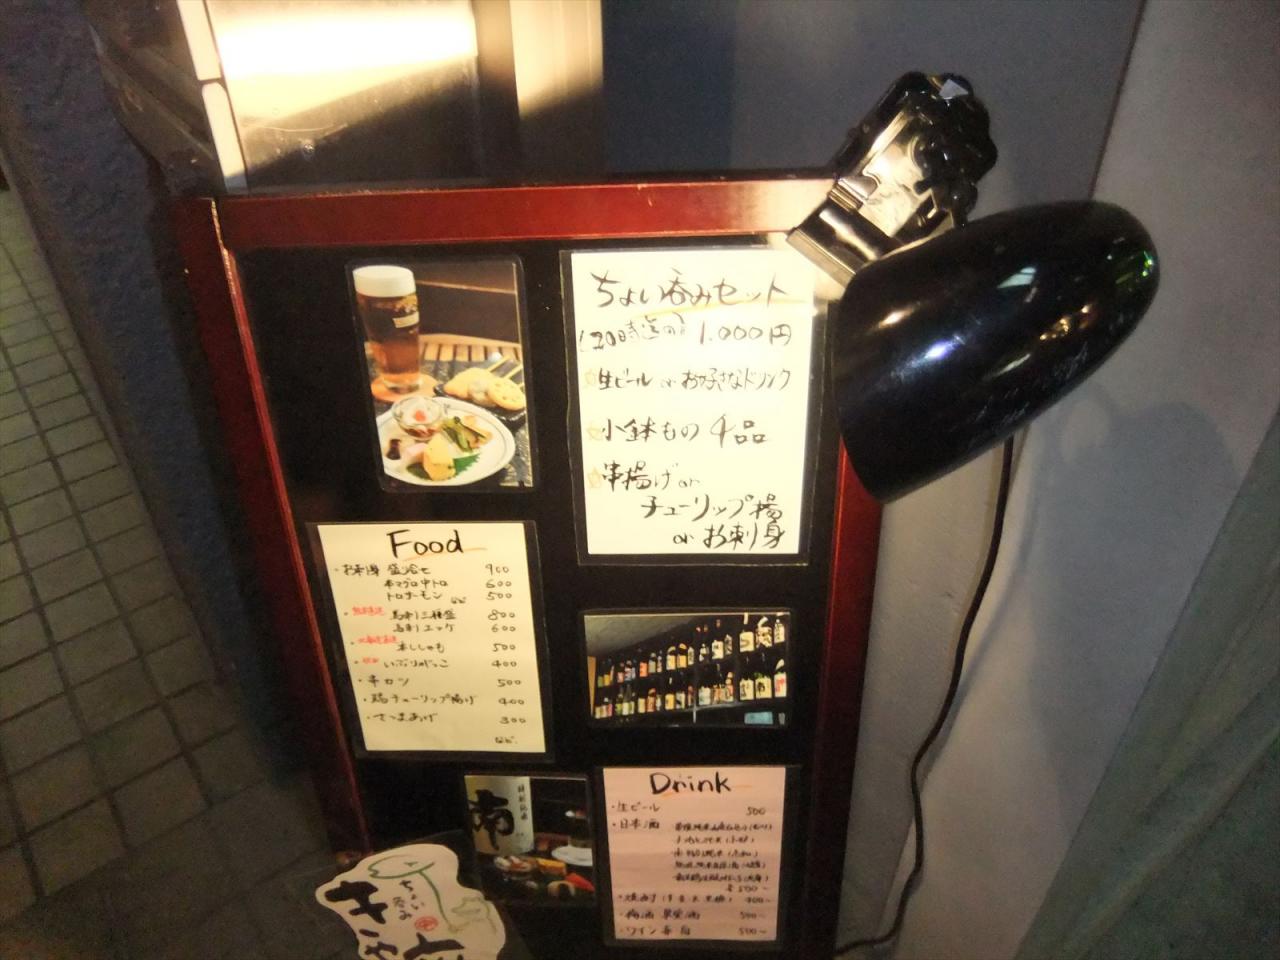 ちょい呑みセット
(20時迄の) 1.000円
生ビール or お好きなドリンク
小鉢もの 4品
串揚げ or
チューリップ揚
or お刺身
Food
・お刺身 盛合せ 900
本マグロ中トロ 600
トロサーモン など 500
・熊本直送 馬刺し三種盛 800
馬刺しユッケ 600
・北海道直送 本ししゃも 500
・秋田 いぶりがっこ 400
・串カツ 500
・鶏チューリップ揚げ 400
・さつまあげ 300
など
Drink
・生ビール 500
・日本酒
各500〜
・焼酎 (芋 麦 米 黒糖) 400〜
・梅酒 果実酒 500〜
・ワイン 赤 白 500〜
ちょい
呑み